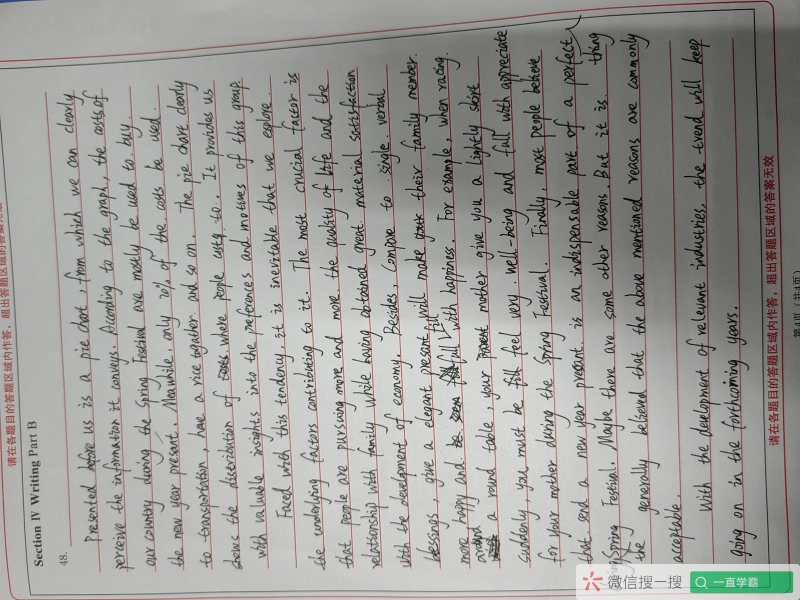 请在各题目的答题区域内作答，超出答题区域的答案无效
Section IV Writing Part B
48.
Presented before us is a pie chart, from which we can clearly
perceive the information it conveys. According to the graph, the costs of
our country during the Spring Festival are mostly be used to buy
the new year present. Meanwhile, only 20% of the costs be used
to transporation, have a rice together and so on. The pie chart clearly
shows the distribution of where people costs to. It provides us
with valuable insights into the preferences and motives of this group.
Faced with this tendency, it is inevitable that we explore
the underlying factors contributing to it. The most crucial factor is
that people are pursuing more and more the quality of life and the
relationship with family while having obtained great material satisfaction
with the development of economy. Besides, compose to single verbal
blessings, give a elegant present will make their family member
more happy and full with happiness. For example, when racing
around a round table, your mother give you a lightly skirt
suddenly, you must be feel very well-being and full with appreciate
for your mother during the Spring Festival. Finally, most people believe
that send a new year present is an indispensable part of a perfect
Spring Festival. Maybe there are some other reasons. But it is thing
the generally believed that the above mentioned reasons are commonly
acceptable.
With the development of relevant industries, the trend will keep
going on in the forthcoming years.
请在各题目的答题区域内作答，超出答题区域的答案无效
第4页 (共4页)
微信搜一搜
一直学霸